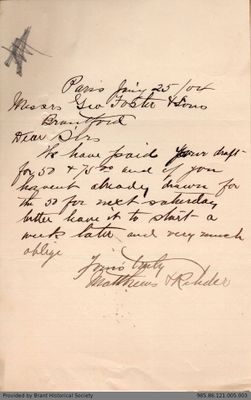 Paris Jany 25/04
Messrs Geo Foster & Sons
Brantford
Dear Sirs
We have paid your draft
for 50 & 75 00 and if you
havent already drawn for
the 50 for next saturday
better leave it to start a
week later and very much
oblige
Yours truly
Matthews &
Provided by Brant Historical Society
985.86.121.005.003